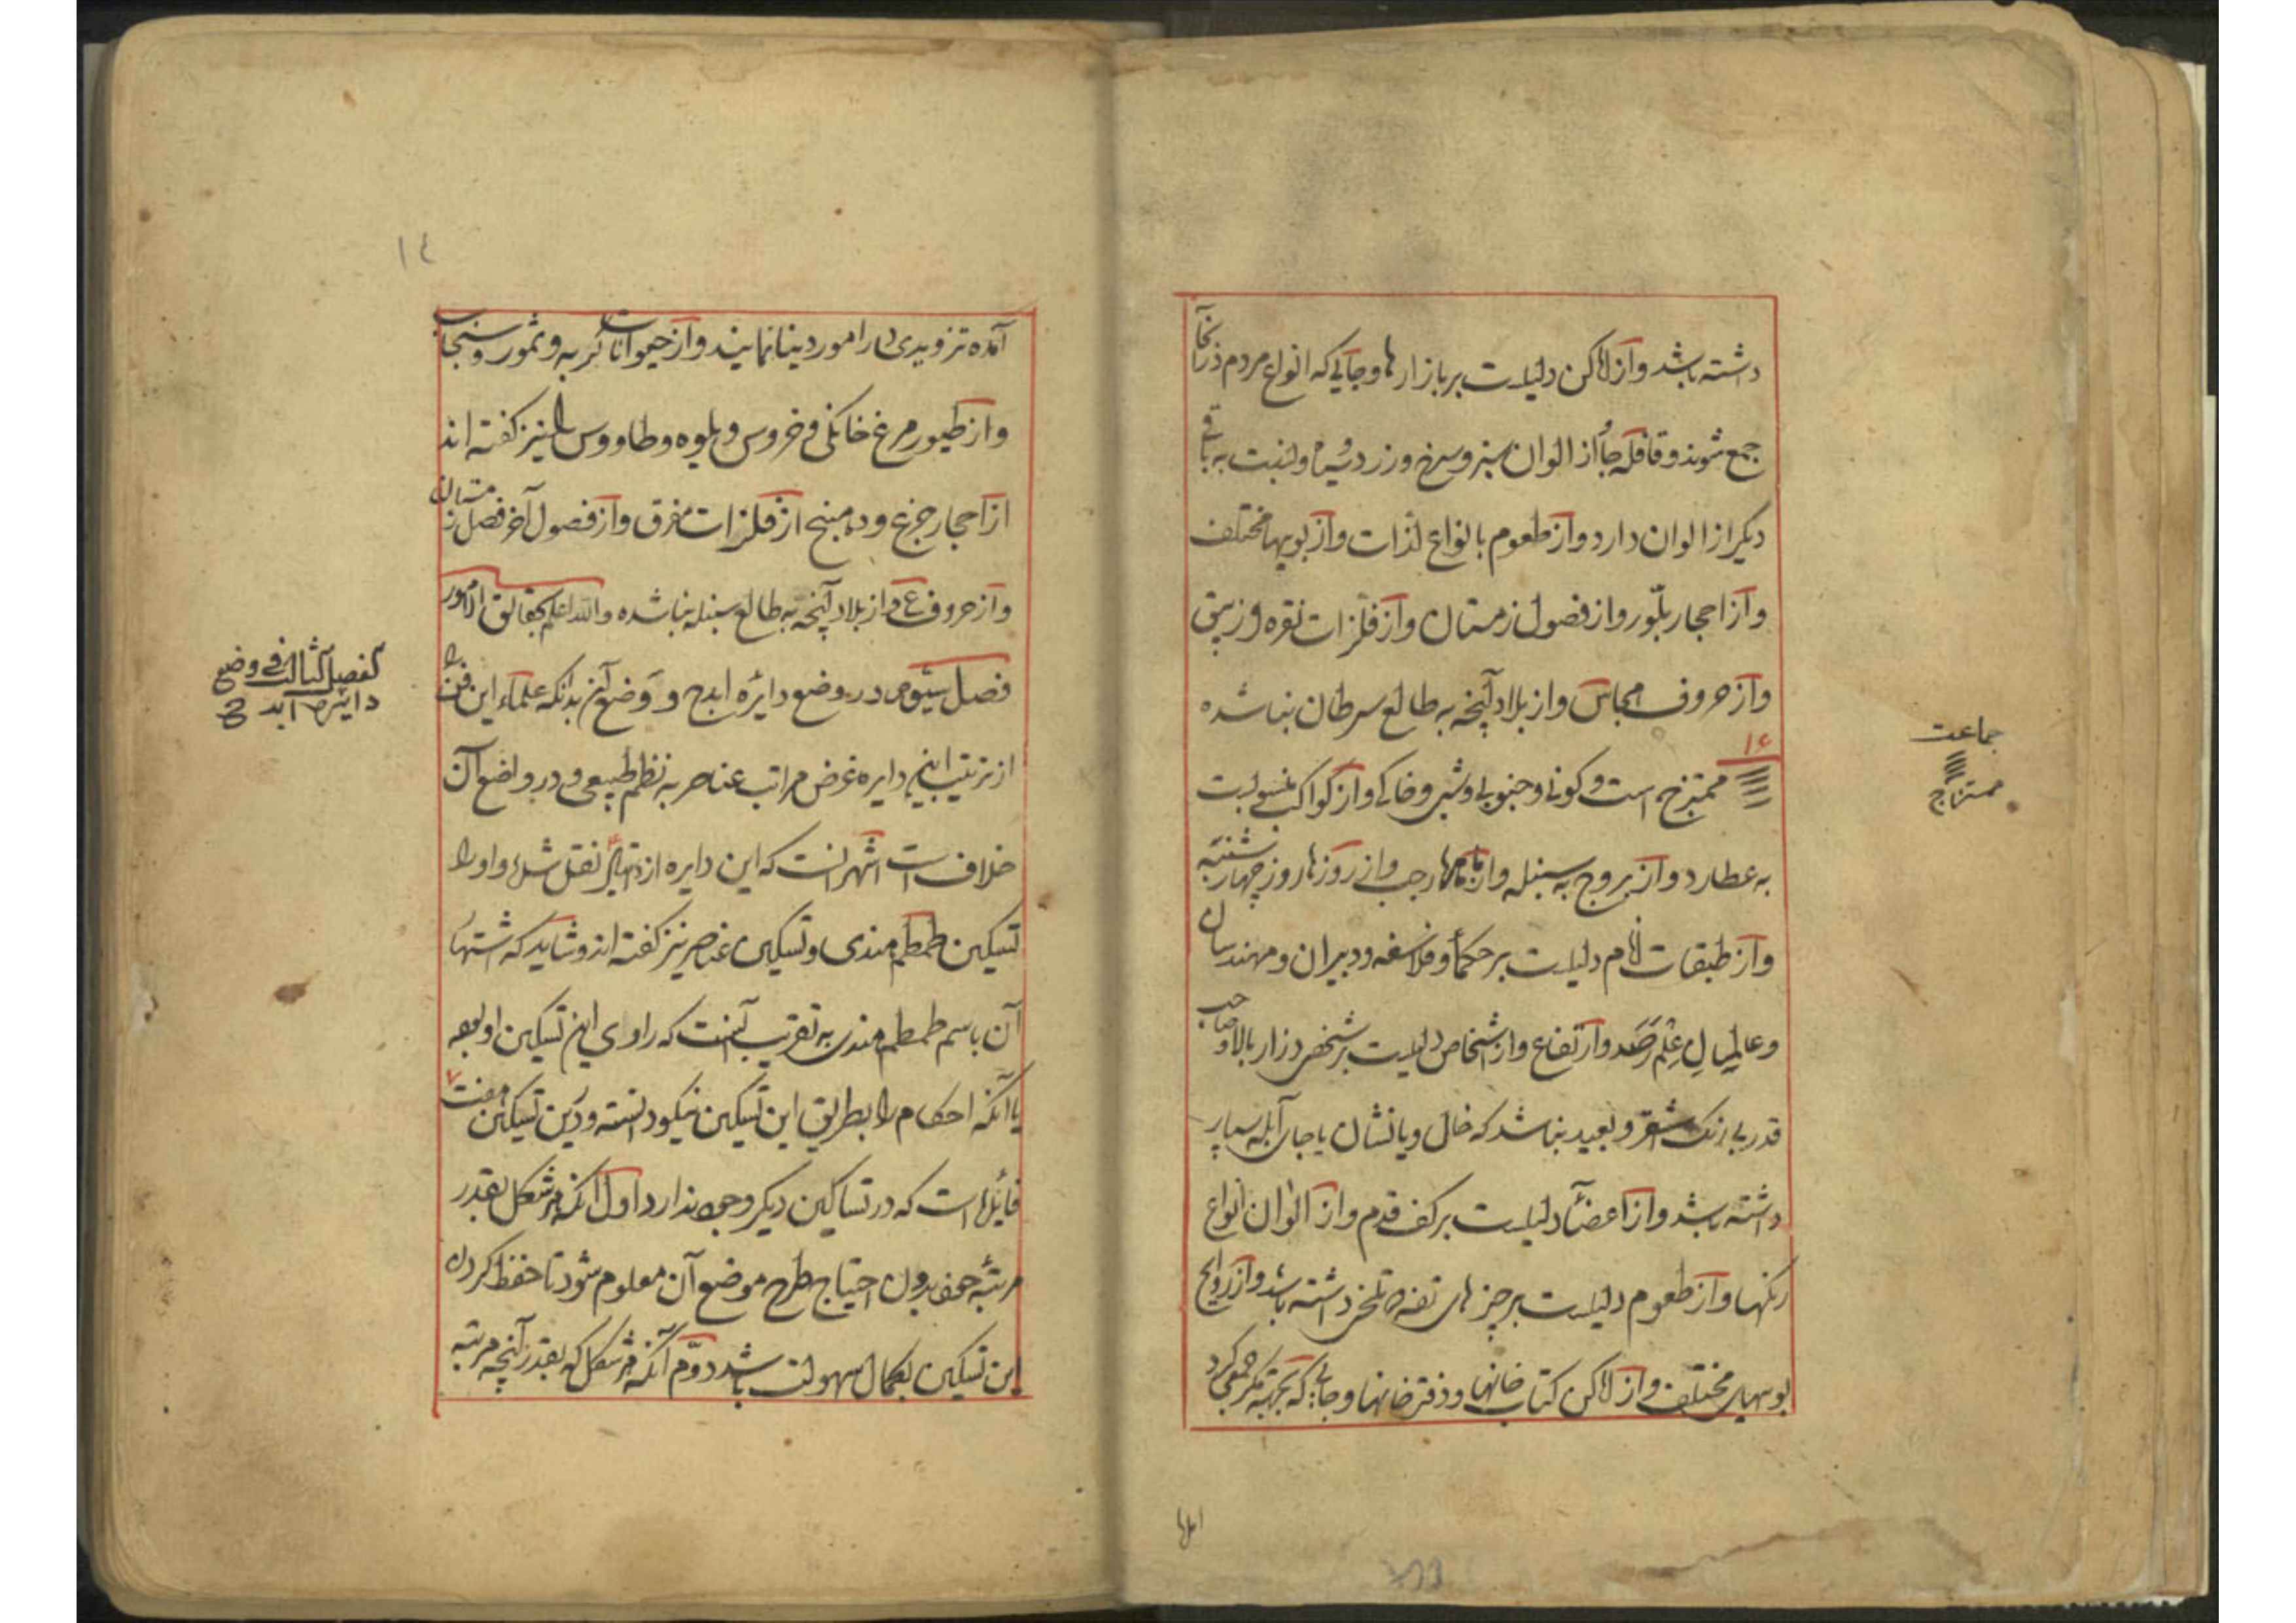 داشته باشد و از اماکن دلیلست بر بازارها و جایی که انواع مردم در آنجا
جمع شوند و قافله جا از الوان سبز و سرخ و زرد و سیاه و نسبت به باقی
دیگر از الوان دارد و از طعوم بانواع لذات و از بویها مختلف
و از احجار بلّور و از فصول زمستان و از فلزات نقره و زیبق
و از حروف و از بلاد آنچه به طالع سرطان بنا شده
۱۶
ممتزج است و کونی و جنوبی و شبی و خاکی و از کواکب منسوبست
به عطارد و از بروج به سنبله و از ماهها رجب و از روزها روز چهارشنبه
و از طبقات انام دلیلست بر حکما و فلاسفه و دبیران و مهندسان
و عالمان علم رصد و ارتفاع و از اشخاص دلیلست بر شخص دراز بالا و صاحب
قدر بی رنگ اشقر و بعید نباشد که خال و یا نشان یا جای آبله بسیار
داشته باشد و از اعضا دلیلست بر کف قدم و از الوان انواع
رنگها و از طعوم دلیلست بر چیزهای تفه و تلخی داشته باشد و از روایح
بویهای مختلف و از اماکن کتاب خانها و دفتر خانها و جایی که بجهة مکر جمعی گرد
جماعت
ممتزاج
۱٤
آمده تزویری در امور دینا نمایند و از حیوانات گربه و سمور و سنجاب
و از طیور مرغ خانکی و خروس و یلوه و طاووس را نیز گفته اند
از احجار جزع و دهنج از فلزات مفرق و از فصول آخر فصل زمستان
و از حروف ع و از بلاد آنچه به طالع سنبله بنا شده والله اعلم بحقائق الامور
فصل سیّوم در وضع دایره ابدح و وضع آن بدانکه علماء این فن را
از ترتیب این دایره غرض مراتب عناصر به نظم طبیعی و در واضع آن
خلافست اشهر آنست که این دایره از نقل شده و او را
تسکین طمطم هندی و تسکین عناصر نیز گفته اند و شاید که اشتهار
آن باسم طمطم هندی به تقریب آنست که راوی این تسکین او بوده
یا آنکه احکام را بطریق این تسکین نیکو دانسته و درین تسکین هفت
فایدهاست که در تساکین دیگر وجود ندارد اول آنکه هر شکل بقدر
مرتبهٔ خود بدون احتیاج طرح موضع آن معلوم شود تا حفظ کردن
این تسکین بکمال سهولت باشد دوّم آنکه هر شکل که بقدر آنچه مرتبه
الفصل الثالث فی وضع
دایره ابدح